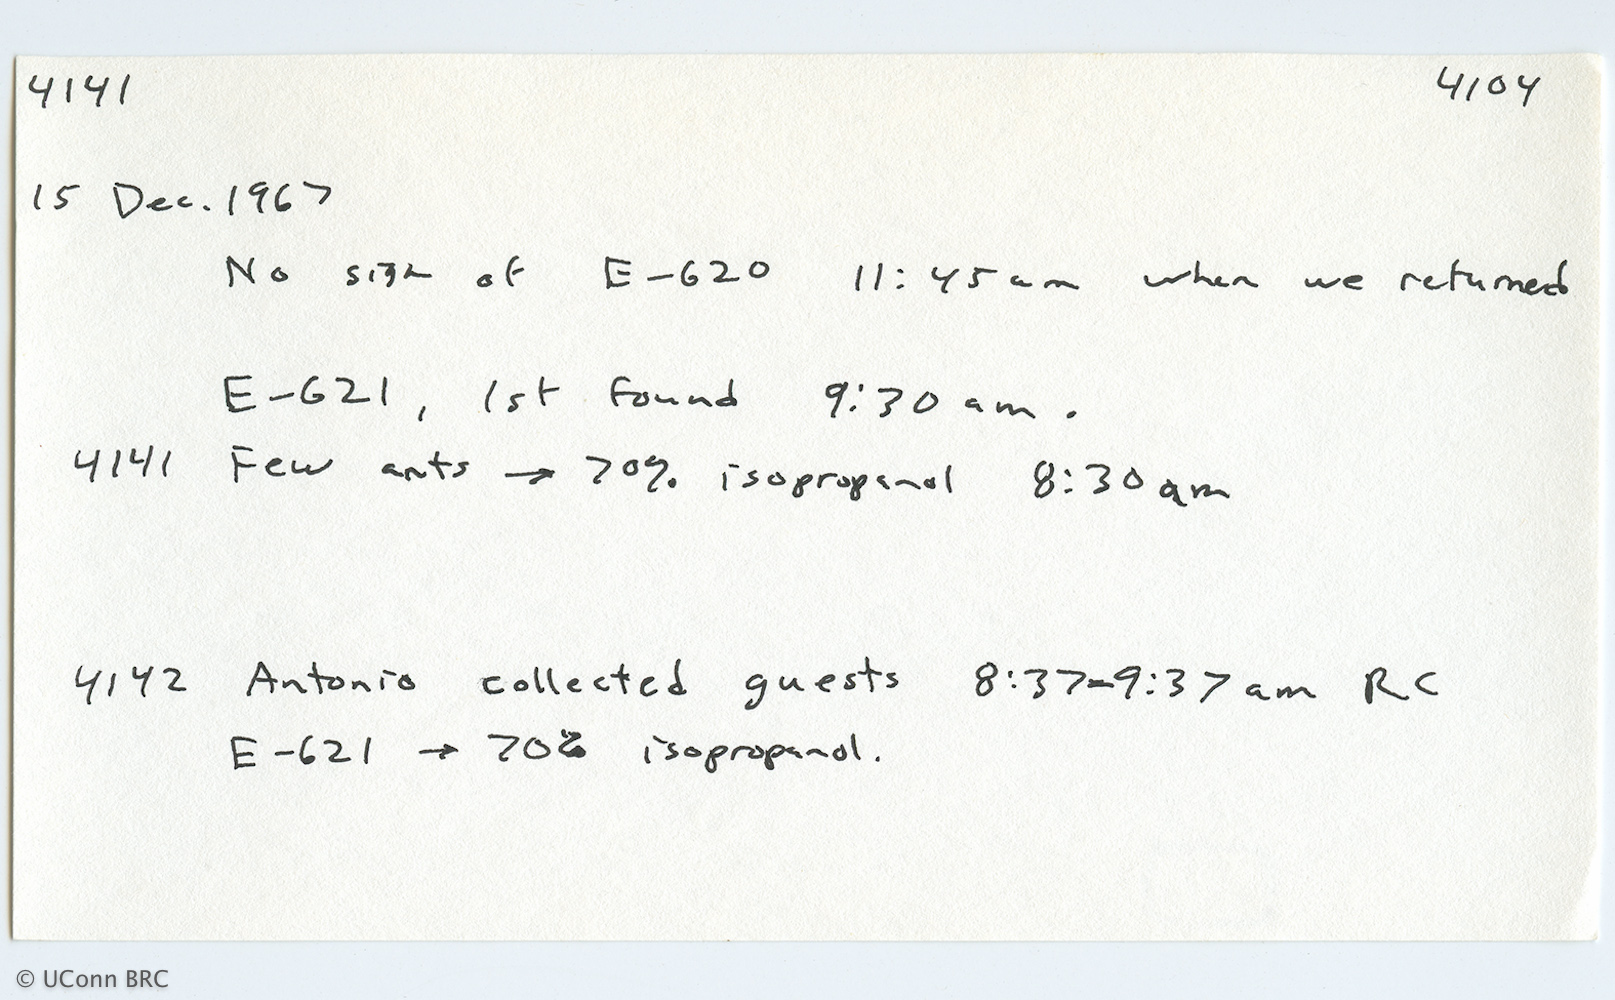 4141 4104
15 Dec. 1967
No sign of E-620 11:45 am when we returned
E-621, 1st found 9:30 am.
4141 Few ants → 70% isopropanol 8:30 am
4142 Antonio collected guests 8:37-9:37 am RC
E-621 → 70% isopropanol.
© UConn BRC